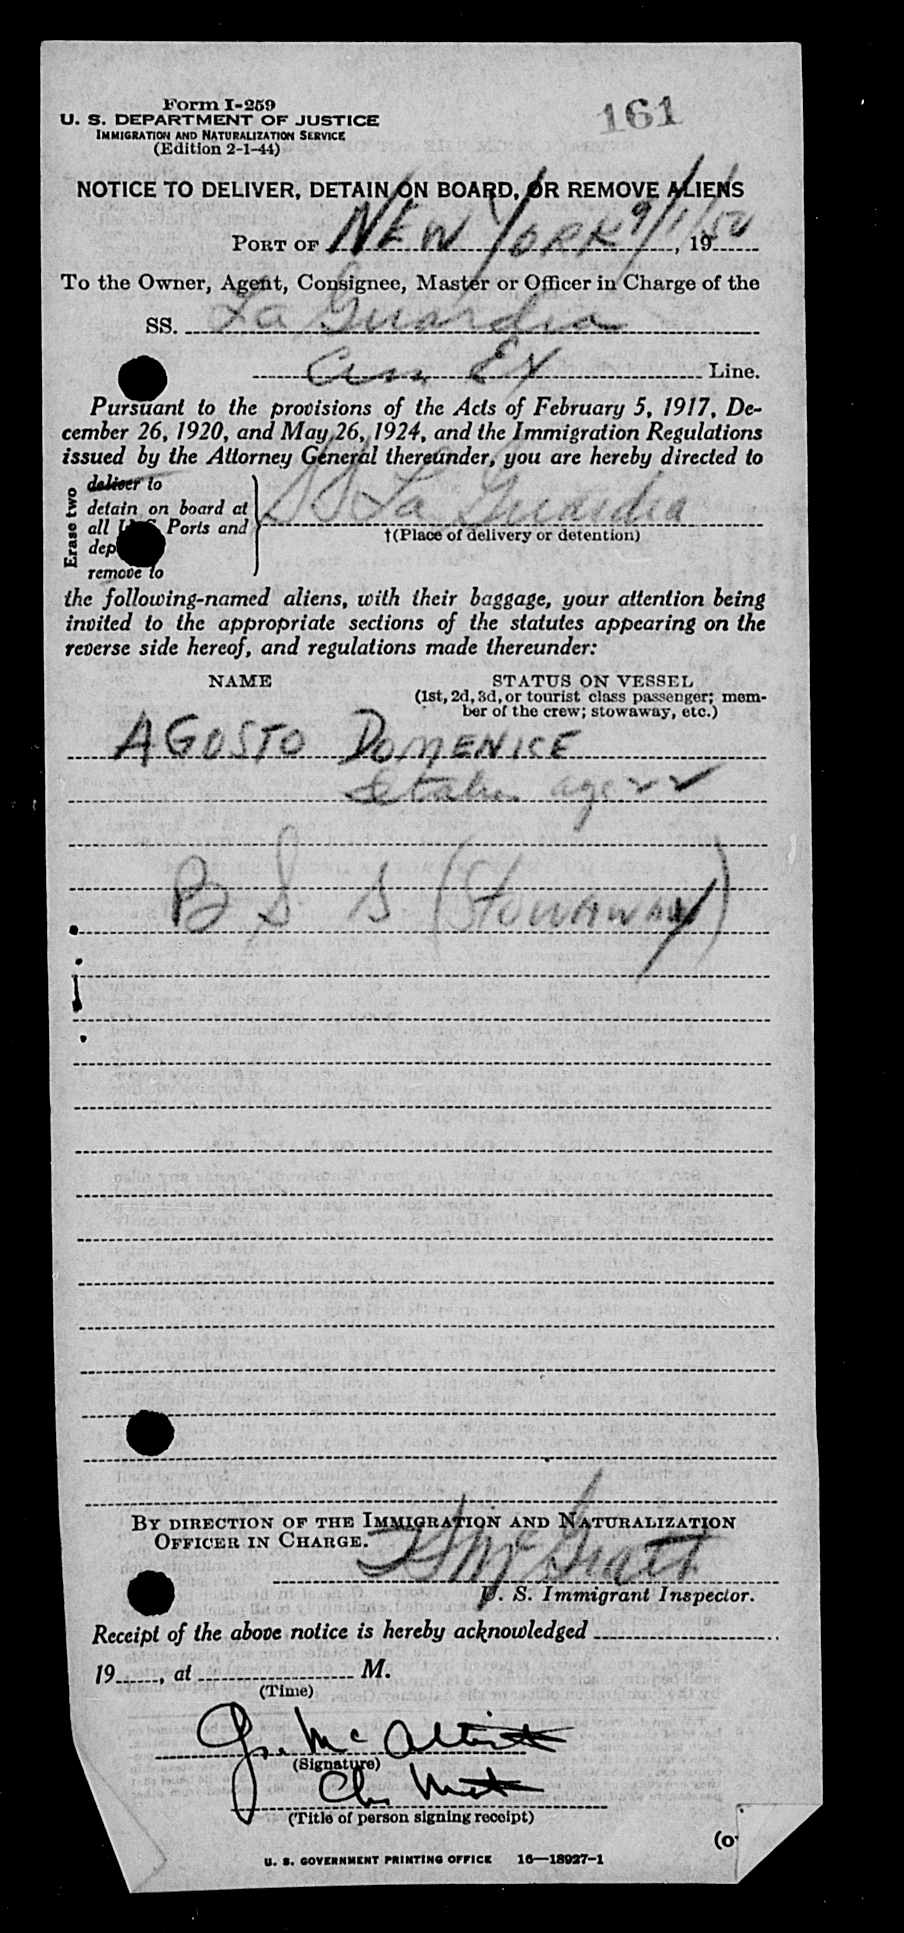 161
Form I-259
U. S. DEPARTMENT OF JUSTICE
IMMIGRATION AND NATURALIZATION SERVICE
(Edition 2-1-44)
NOTICE TO DELIVER, DETAIN ON BOARD, OR REMOVE ALIENS
PORT OF NEW YORK 9/1/50, 19
To the Owner, Agent, Consignee, Master or Officer in Charge of the
SS. La Guardia
Am Ex Line.
Pursuant to the provisions of the Acts of February 5, 1917, De-
cember 26, 1920, and May 26, 1924, and the Immigration Regulations
issued by the Attorney General thereunder, you are hereby directed to
Erase two
deliver to
detain on board at
all U S Ports and
dep
remove to
SS La Guardia
†(Place of delivery or detention)
the following-named aliens, with their baggage, your attention being
invited to the appropriate sections of the statutes appearing on the
reverse side hereof, and regulations made thereunder:
NAME STATUS ON VESSEL
(1st, 2d, 3d, or tourist class passenger; mem-
ber of the crew; stowaway, etc.)
AGOSTO DOMENICE
Italian age 22
B S S (STOWAWAY)
BY DIRECTION OF THE IMMIGRATION AND NATURALIZATION
OFFICER IN CHARGE.
McGratt
U. S. Immigrant Inspector.
Receipt of the above notice is hereby acknowledged
19, at M.
(Time)
(Signature)
(Title of person signing receipt)
(o
U. S. GOVERNMENT PRINTING OFFICE 16—18927-1